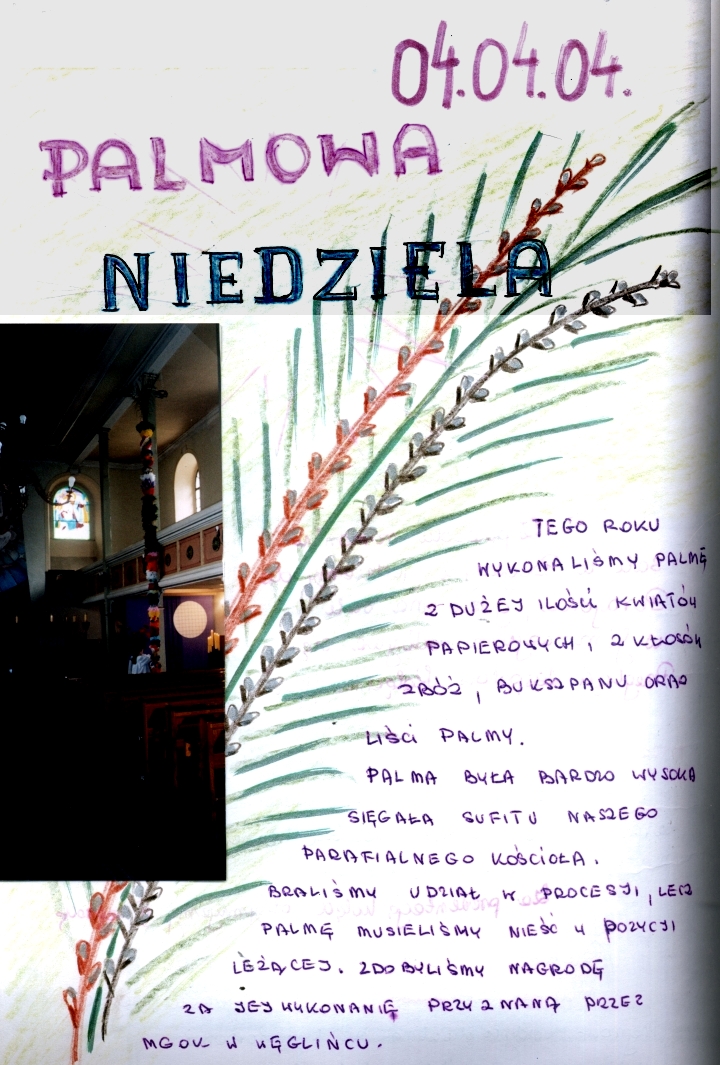 04.04.04.
PALMOWA
NIEDZIELA
TEGO ROKU
WYKONALIŚMY PALMĘ
Z DUŻEJ ILOŚCI KWIATÓW
PAPIEROWYCH, Z KŁOSÓW
ZBÓŻ, BUKSZPANU ORAZ
LIŚCI PALMY.
PALMA BYŁA BARDZO WYSOKA
SIĘGAŁA SUFITU NASZEGO
PARAFIALNEGO KOŚCIOŁA.
BRALIŚMY UDZIAŁ W PROCESJI, LECZ
PALMĘ MUSIELIŚMY NIEŚĆ W POZYCJI
LEŻĄCEJ. ZDOBYLIŚMY NAGRODĘ
ZA JEJ WYKONANIĘ PRZYZNANĄ PRZEZ
MGOK W WĘGLIŃCU.